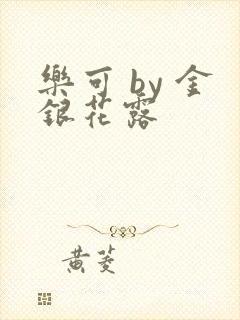 樂可 by 金
銀花露
黄菱